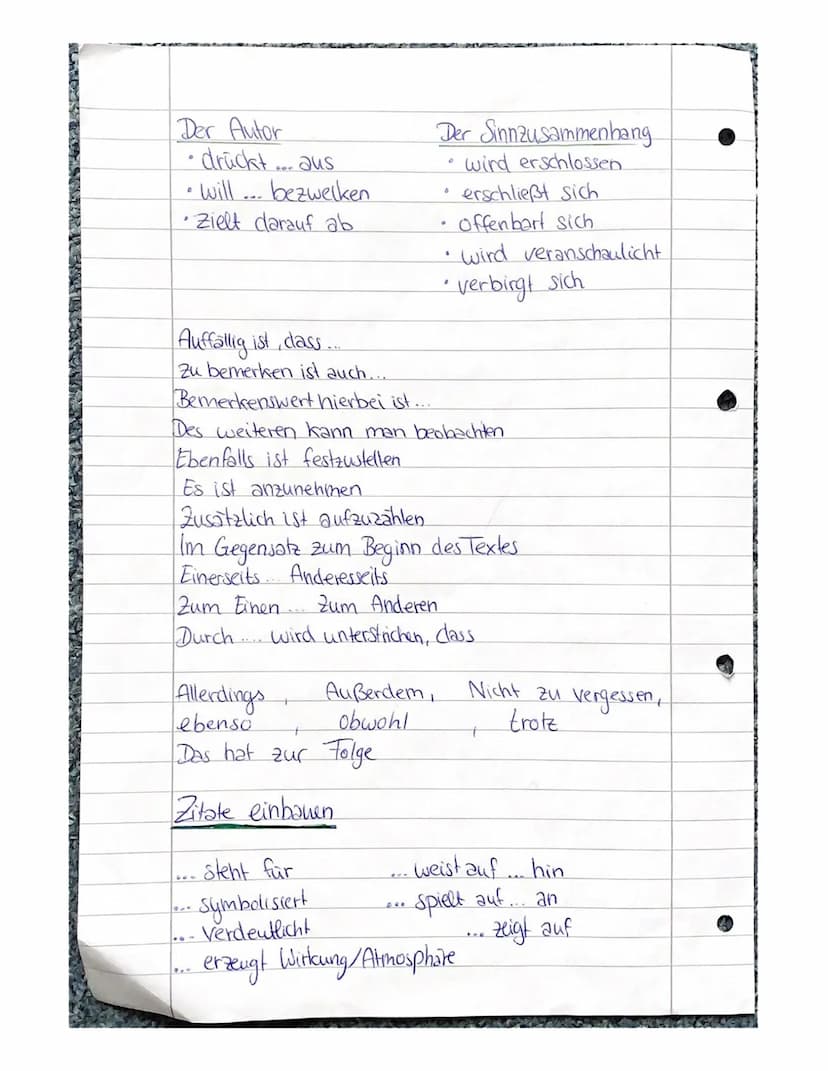 Der Autor
• drückt ... aus
• will ... bezwelken
• zielt darauf ab
Der Sinnzusammenhang
• wird erschlossen
• erschließt sich
• offenbart sich
• wird veranschaulicht
• verbirgt sich
Auffällig ist, dass...
zu bemerken ist auch...
Bemerkenswert hierbei ist...
Des weiteren kann man beobachten
Ebenfalls ist festzustellen
Es ist anzunehmen
Zusätzlich ist aufzuzählen
Im Gegensatz zum Beginn des Textes
Einerseits... Anderesseits
Zum Einen ... Zum Anderen
Durch .... wird unterstrichen, dass
Allerdings , Außerdem, Nicht zu vergessen,
ebenso , obwohl , trotz
Das hat zur Folge
Zitate einbauen
... steht für
... symbolisiert
... verdeutlicht
... erzeugt Wirkung/Atmosphäre
... weist auf ... hin
... spielt auf... an
... zeigt auf